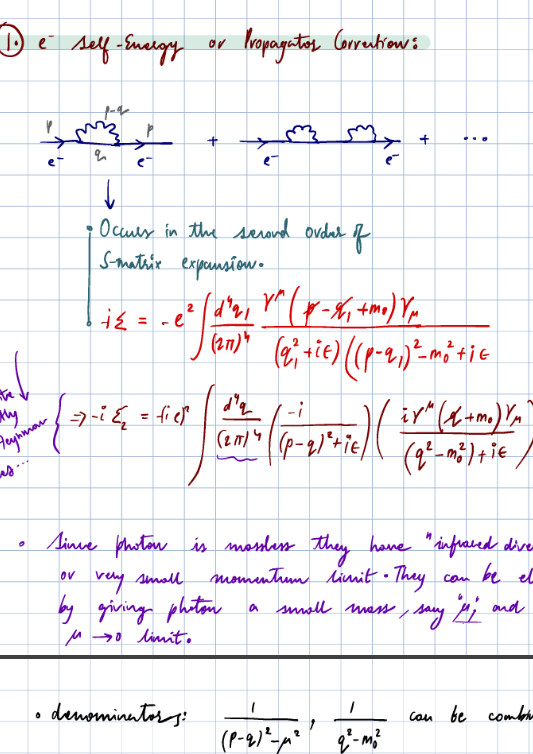 1. e⁻ Self-Energy or Propagator Correction:
p p-q p + + ...
e⁻ q e⁻ e⁻ e⁻
• Occurs in the second order of
S-matrix expansion.
-iΣ = -e² ∫ d⁴q₁/(2π)⁴ γ^μ (p̸ - q̸₁ + m₀) γ_μ / (q₁² + iε) ((p-q₁)² - m₀² + iε
⇒ -iΣ₂ = (-ie)² ∫ d⁴q/(2π)⁴ (-i/((p-q)² + iε)) (iγ^μ (q̸ + m₀) γ_μ / ((q² - m₀²) + iε))
• Since photon is massless they have "infrared dive
or very small momentum limit. They can be el
by giving photon a small mass, say 'μ', and
μ → 0 limit.
• denominators: 1/((p-q)² - μ²), 1/(q² - m₀²) can be combi